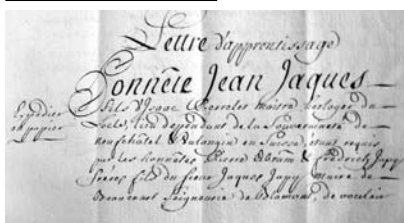 Lettre d'apprentissage
Honnête Jean Jaques
fils d'Isaac Perrelet maistre horloger du
Expédier
en papier
Locle, lieu dépendant de la Souveraineté de
neufchâtel & Valangin en Suisse, étant requis
par les honnêtes Pierre Abram & Frédérich Japy
frères fils du sieur Jaques Japy maire de
Beaucourt Seigneurie de Blamont, de vouloir